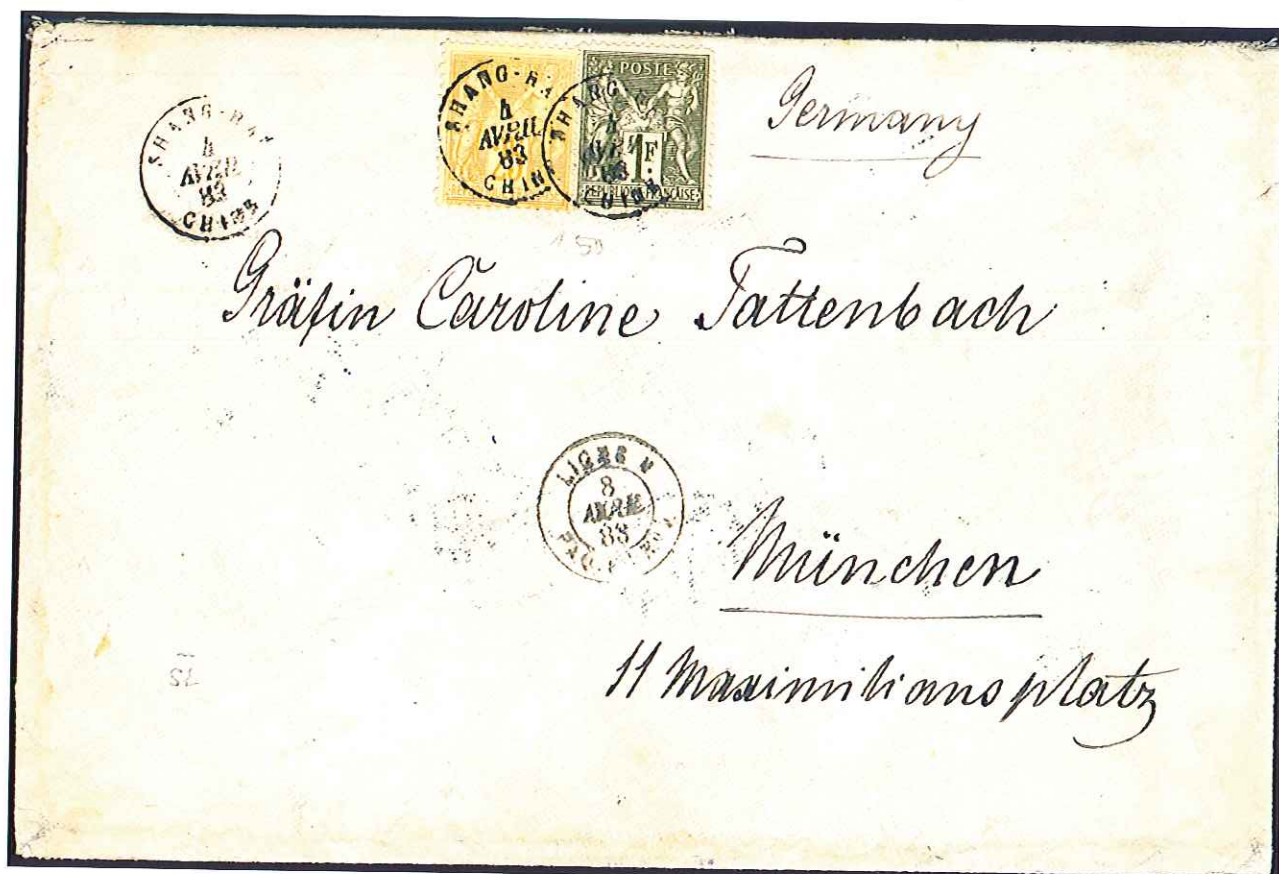 SHANG-HAI
4
AVRIL
83
CHINE
SHANG-HAI
4
AVRIL
83
CHINE
SHANG
4
83
CHINE
POSTE
1F
REPUBLIQUE FRANCAISE
25
Germany
Gräfin Caroline Tattenbach
LIGNE N
8
AVRIL
83
PAQ. FR. No
München
11 Maximiliansplatz